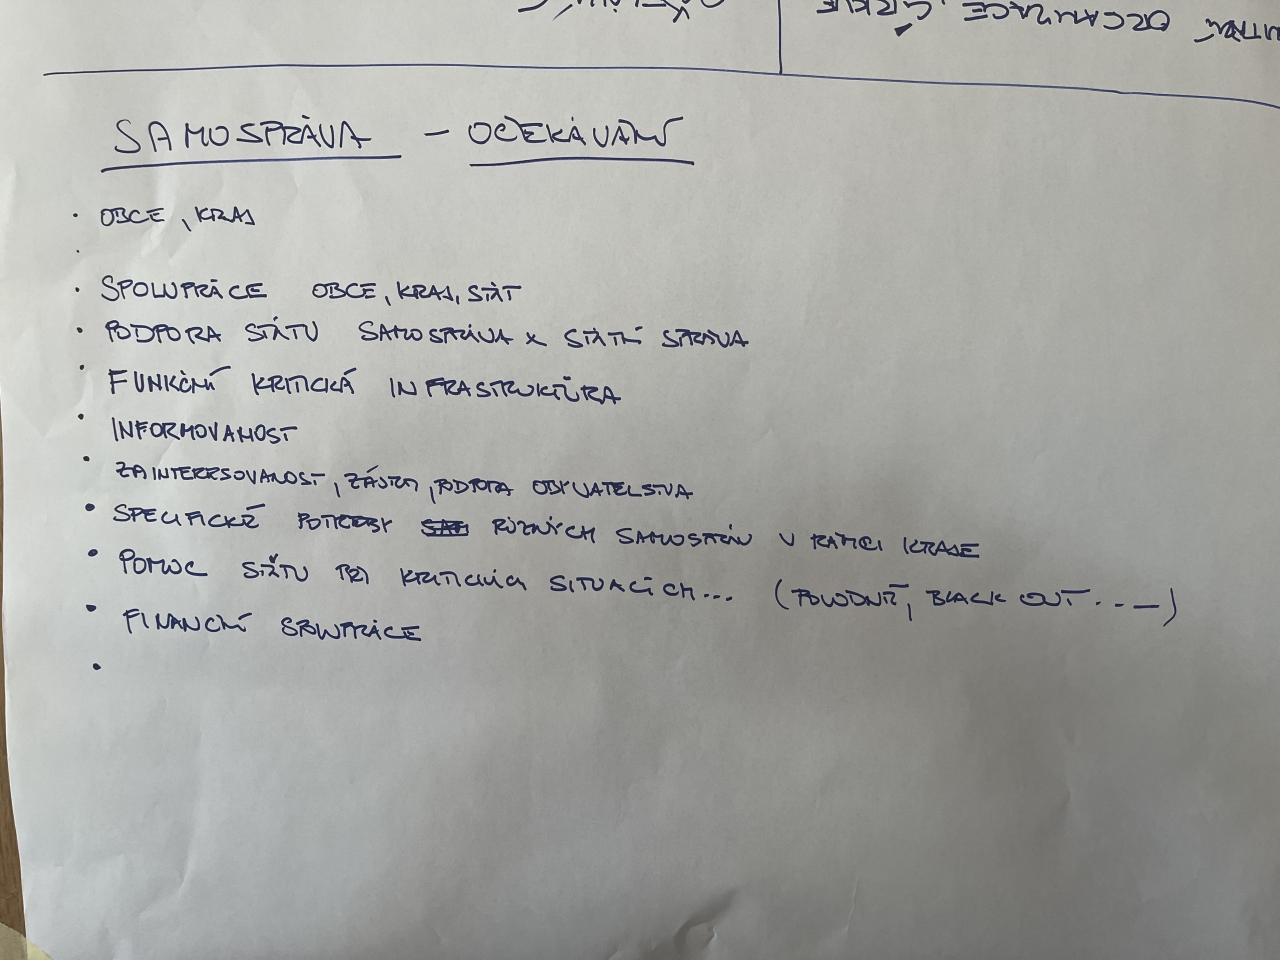 SAMOSPRÁVA - OČEKÁVÁNÍ
• OBCE, KRAJ
•
• SPOLUPRÁCE OBCE, KRAJ, STÁT
• PODPORA STÁTU SAMOSPRÁVA x STÁTNÍ SPRÁVA
• FUNKČNÍ KRITICKÁ INFRASTRUKTŮRA
• INFORMOVANOST
• ZAINTERESOVANOST, ZÁJEM, PODPORA OBYVATELSTVA
• SPECIFICKÉ POTŘEBY RŮZNÝCH SAMOSPRÁV V RÁMCI KRAJE
• POMOC STÁTU PŘI KRITICKÝCH SITUACÍCH... (POVODNĚ, BLACK OUT...)
• FINANČNÍ SPOLUPRÁCE
•
ORGANIZACE, CÍRKVE